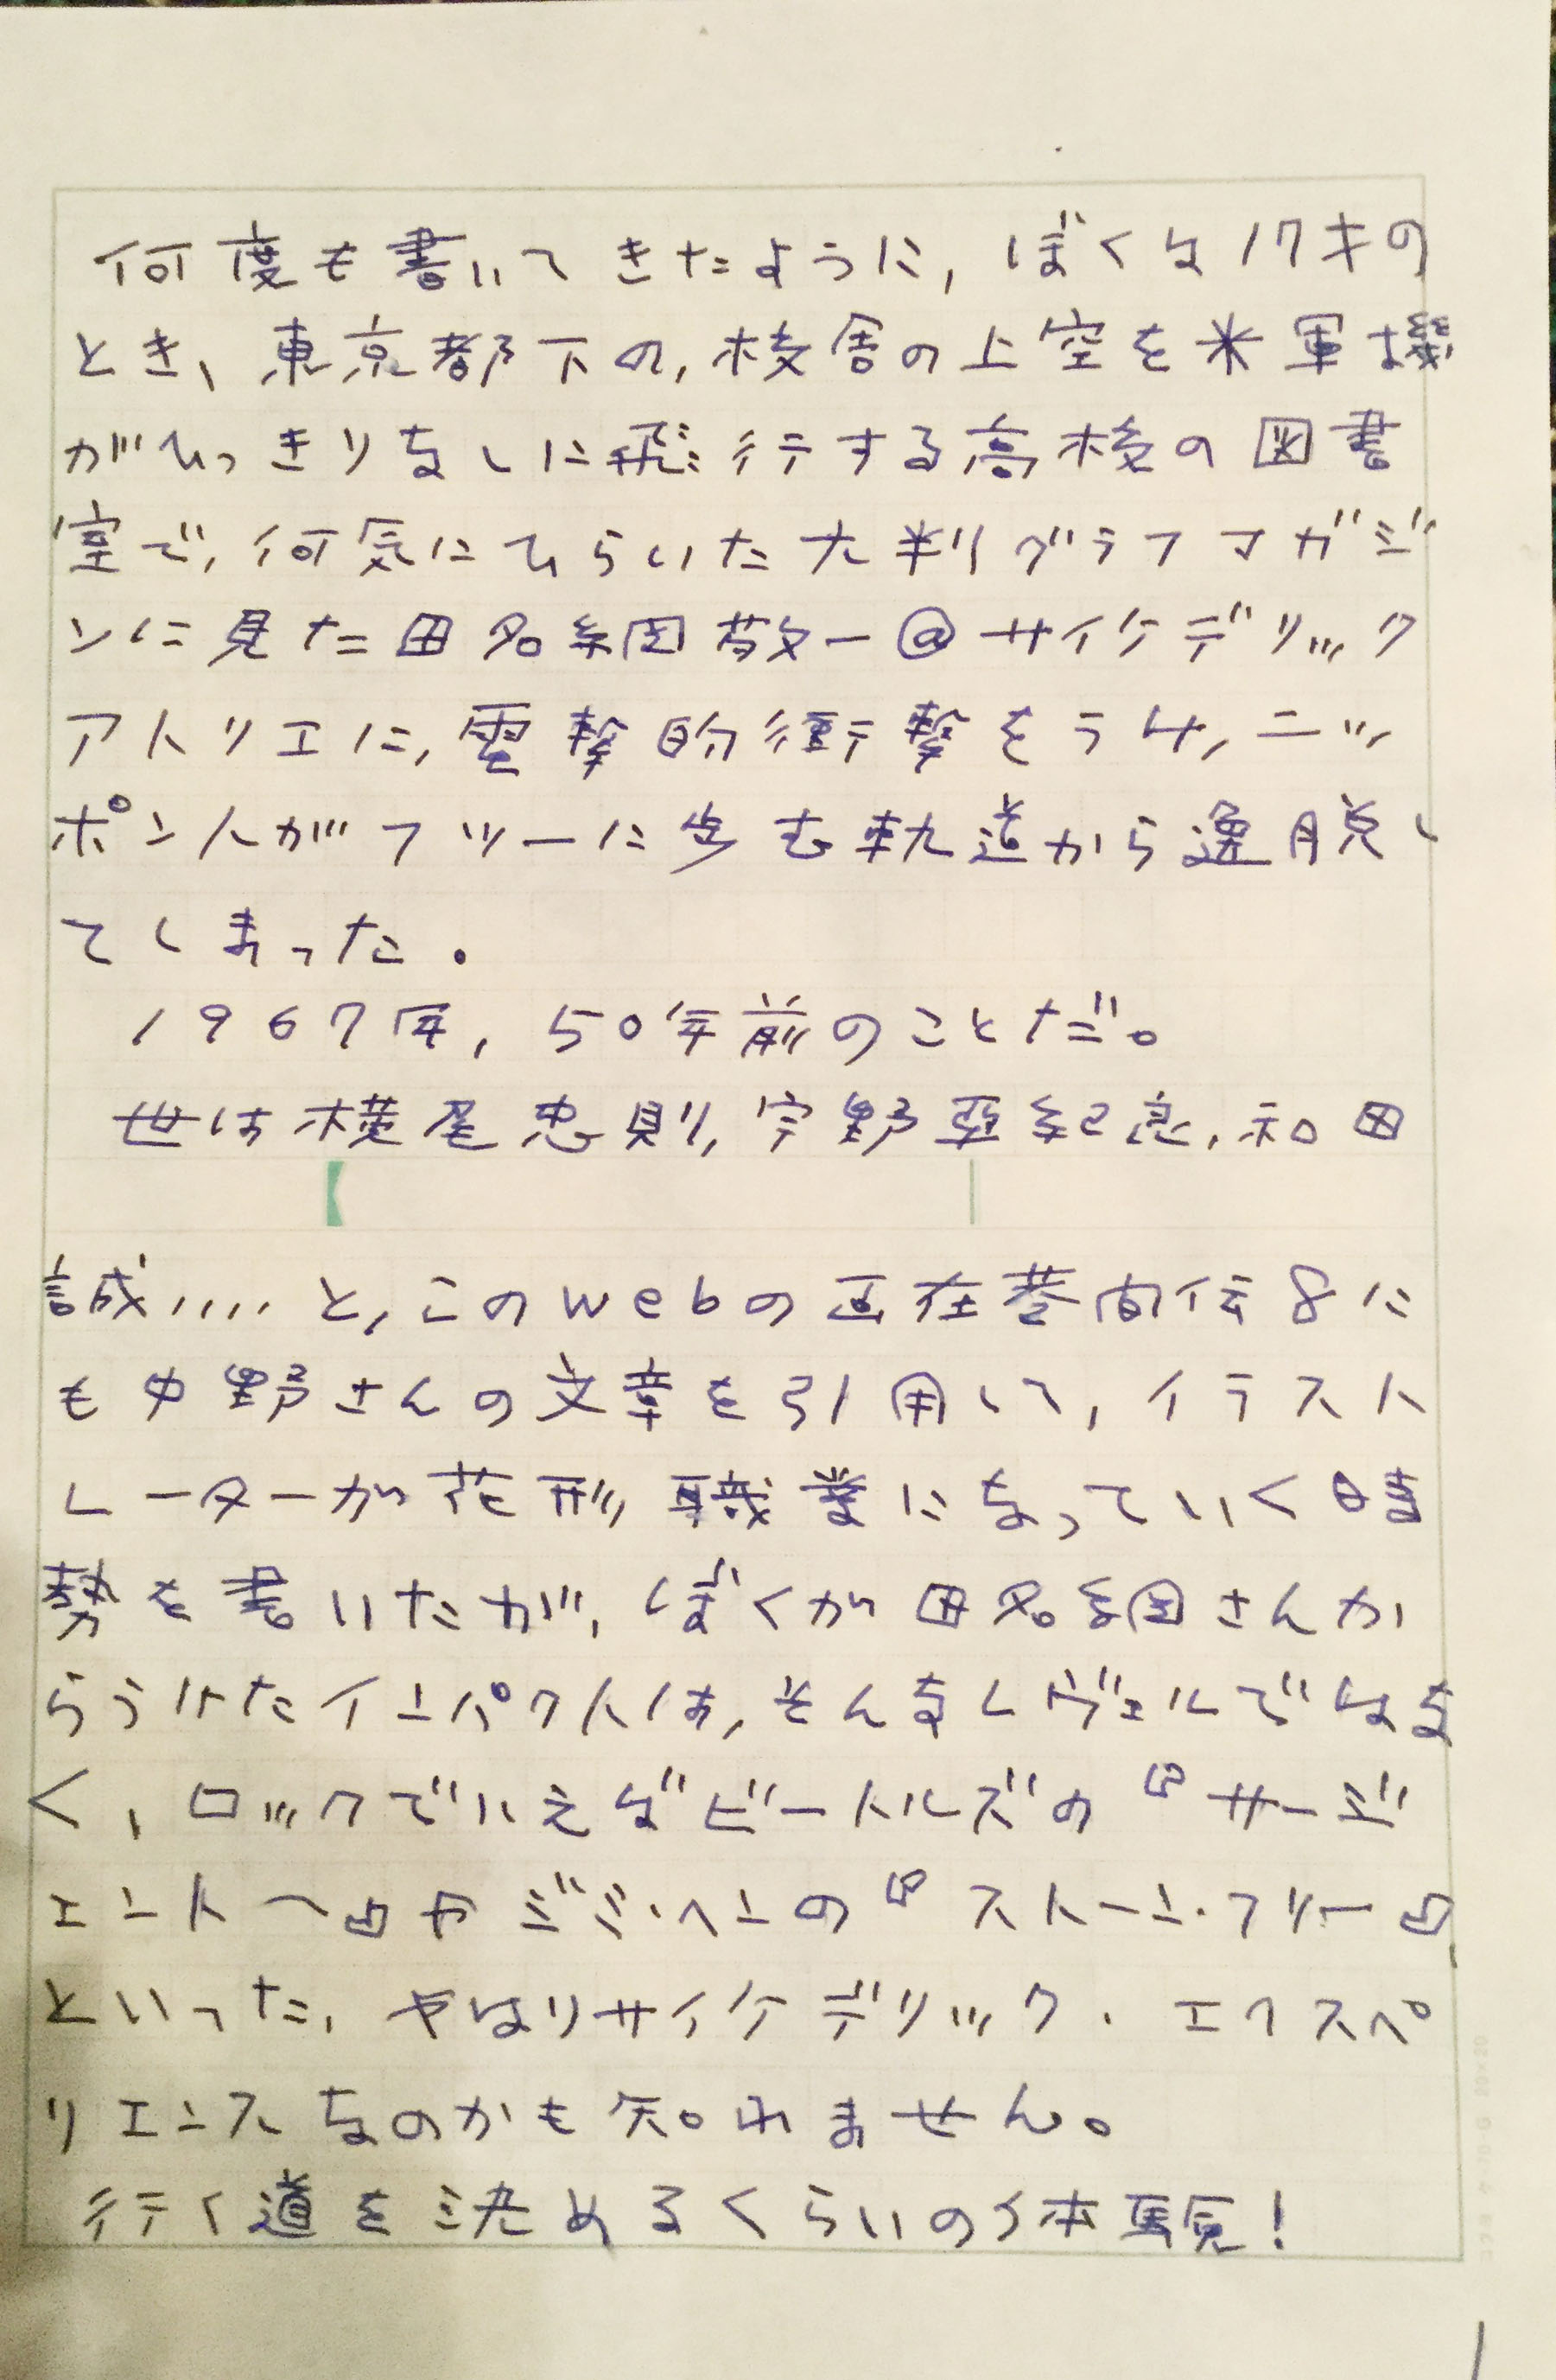 何度も書いてきたように，ぼくは17才の
とき、東京都下の，校舎の上空を米軍機
がひっきりなしに飛行する高校の図書
室で，何気にひらいた大判グラフマガジ
ンに見た田名網敬一@サイケデリック
アトリエに，電撃的衝撃をうけ，ニッ
ポン人がフツーに歩む軌道から逸脱し
てしまった。
1967年，50年前のことだ。
世は横尾忠則，宇野亜紀良，和田
誠‥‥と，このwebの画在巷間伝8に
も中野さんの文章を引用して，イラスト
レーターが花形職業になっていく時
勢を書いたが，ぼくが田名網さんか
らうけたインパクトは，そんなレヴェルではな
く，ロックでいえばビートルズの『サージ
ェント〜』やジミ・ヘンの『ストーン・フリー』
といった，やはりサイケデリック・エクスペ
リエンスなのかも知れません。
行く道を決めるくらいの体験!